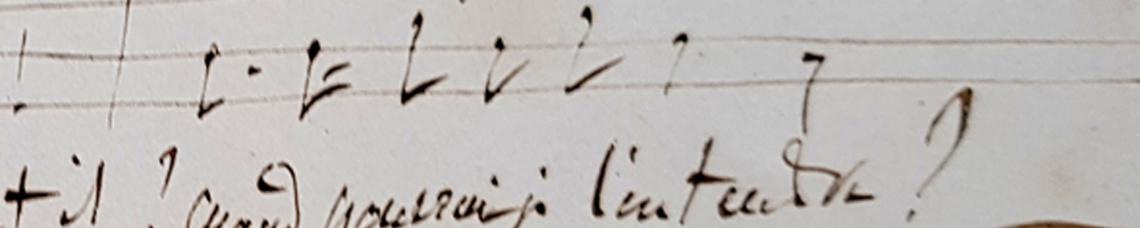 t'il ? quand pourrai-je l'entendre ?